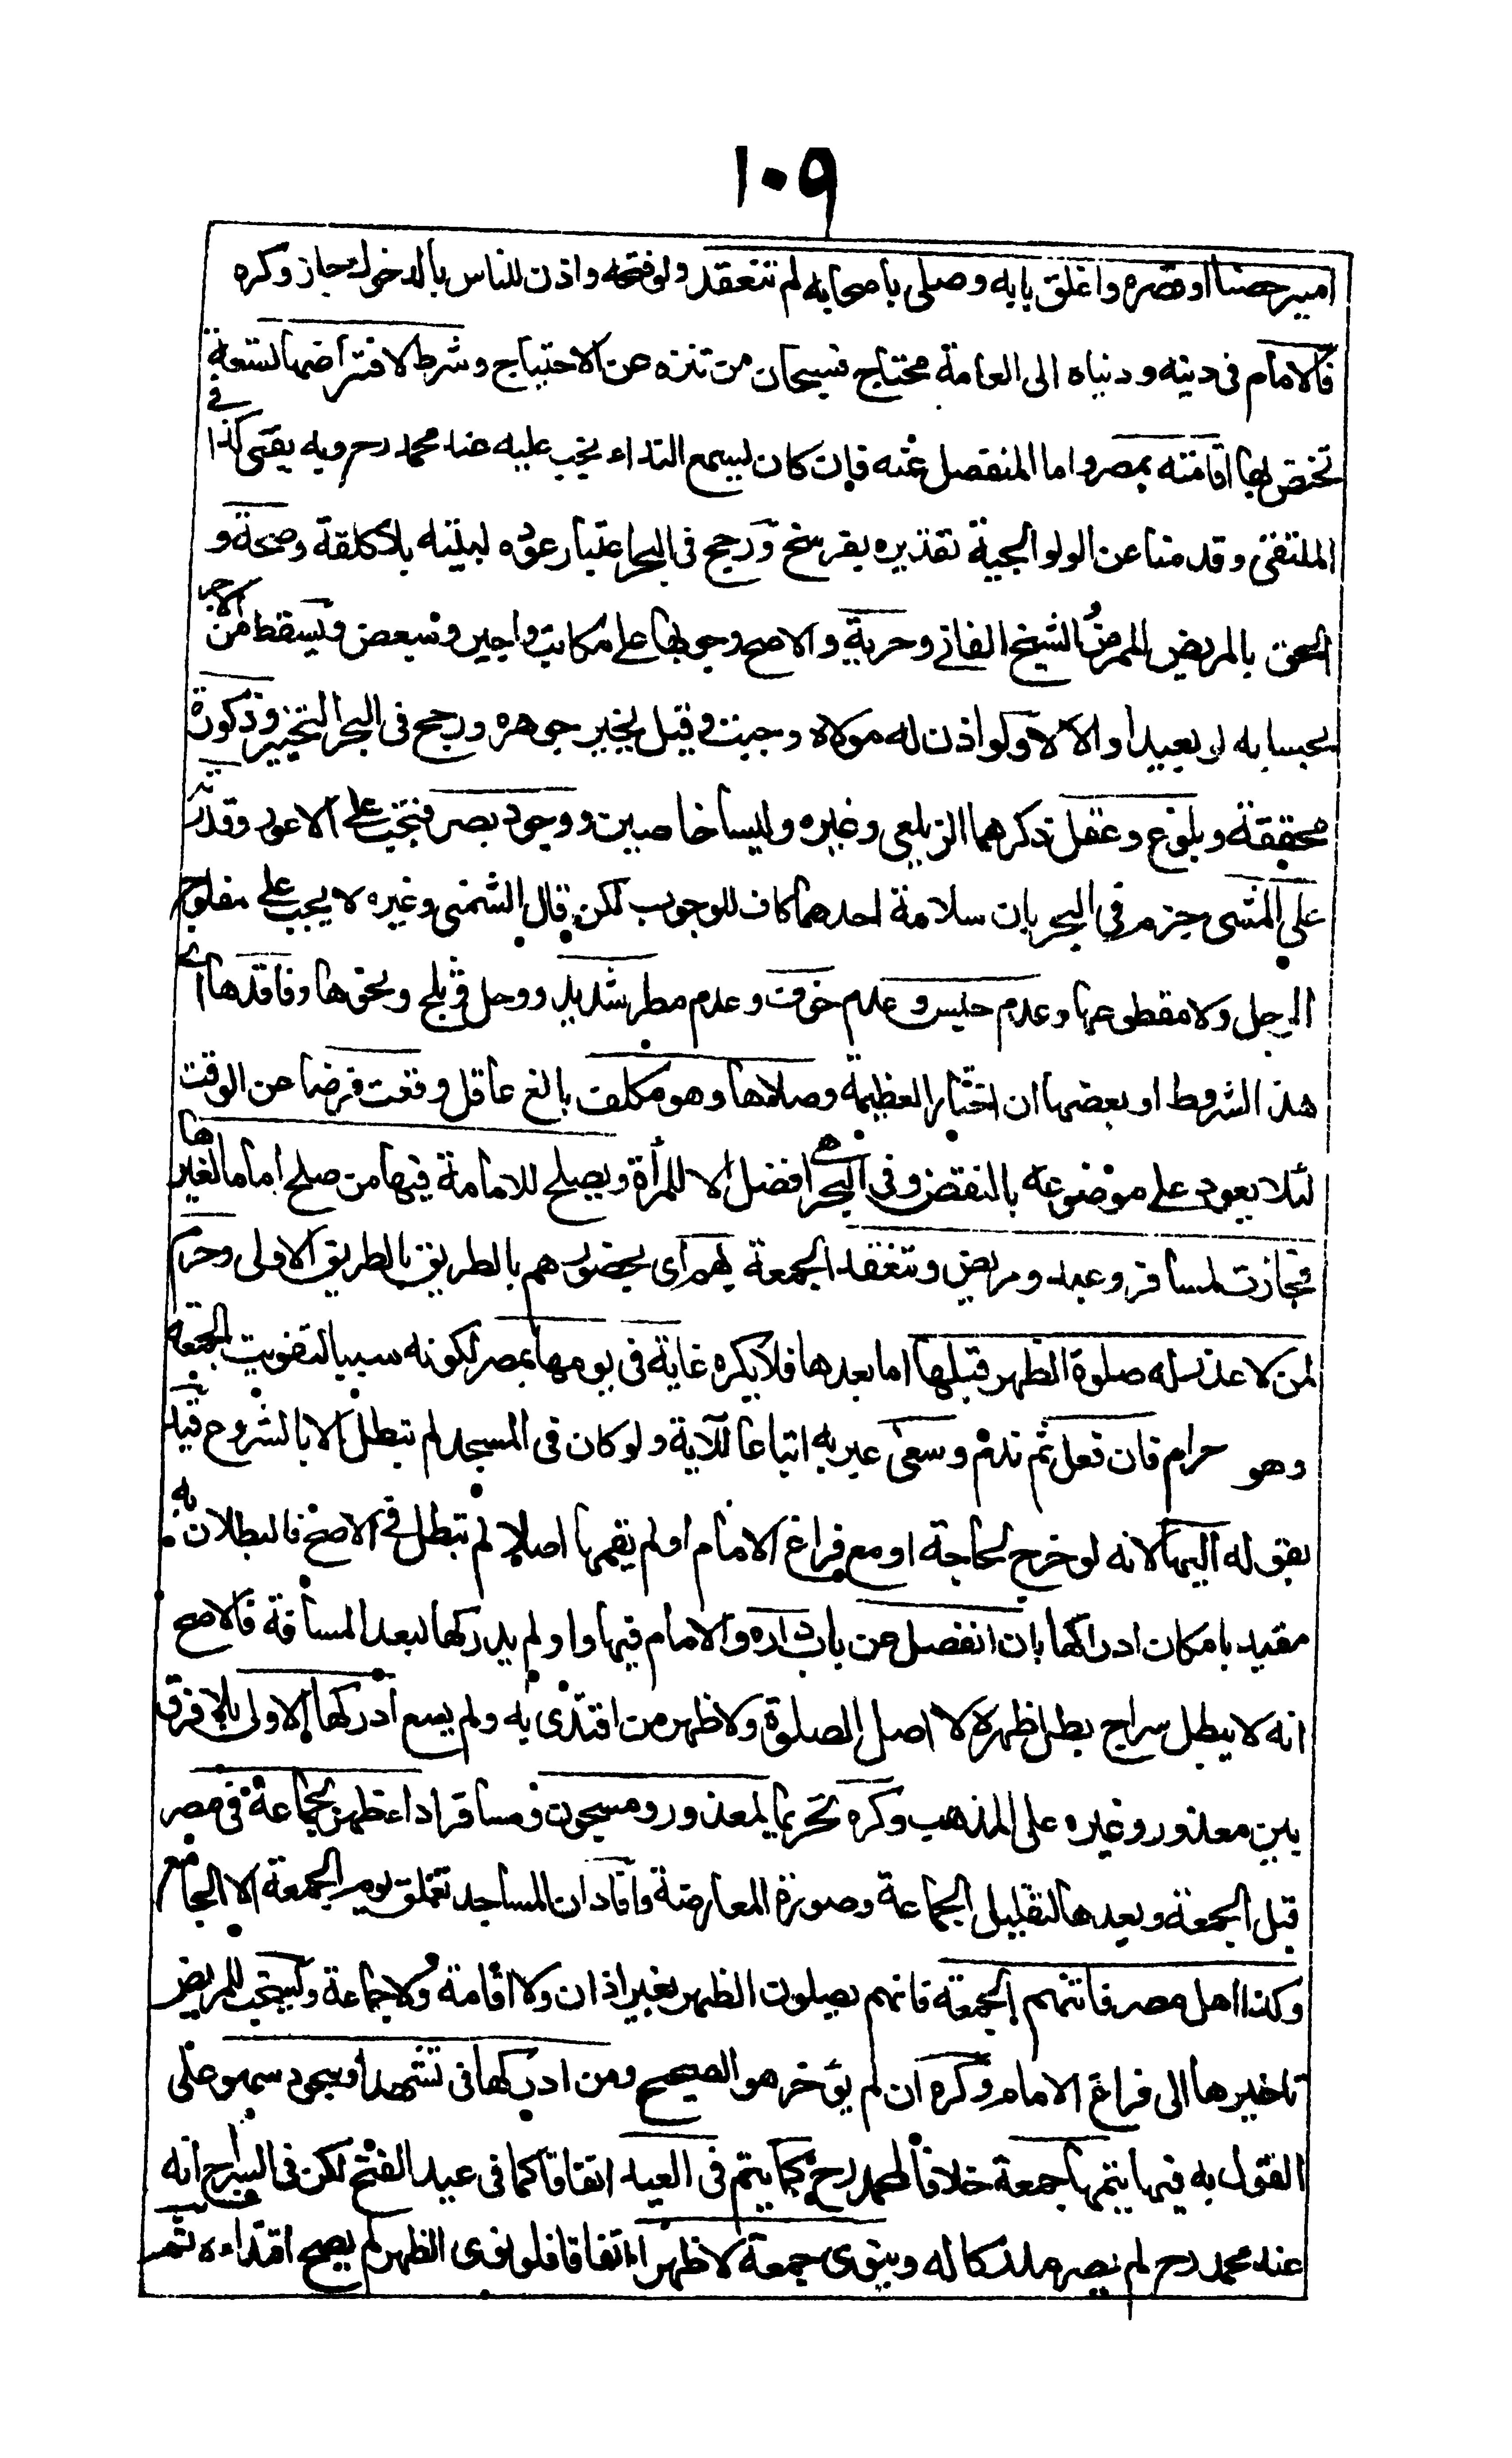 ١٠٩
امير حصنا او قصره واغلق بابه وصلى باصحابه لم تنعقد ولو فتحه واذن للناس بالدخول جاز وكره
فالامام فى دينه ودنياه الى العامة محتاج فسبحان من تنزه عن الاحتياج وشرط لافتراضها لستعة
تختص بها اقامته بمصر واما المنفصل عنه فان كان يسمع النداء يجب عليه عند محمد رح وبه يفتى كذا فى
الملتقى وقد منا عن الولوالجية تقديره بفرسخ ورجح فى البحر اعتبار عوده لبيته بلا كلفة وصحة و
الحق بالمريض الممرض والشيخ الفانى وحرية والاصح وجوبها على مكاتب واجير ومبعض ويسقط من الاجر
بحسابه لو بعيدا والا لا ولو اذن له مولاه وجبت وقيل يخير جوهره ورجح فى البحر التخيير وذكورة
محققة وبلوغ وعقل ذكرهما الزيلعى وغيره وليسا خاصين ووجود بصر فتجب على الاعور وقدرته
على المشى جزم فى البحر بان سلامة احدهما كاف للوجوب لكن قال الشمنى وغيره لا يجب على مفلوج
الرجل ولا مقطوعها وعدم حبس وعدم خوف وعدم مطر شديد ووحل وثلج ونحوها وفاقدها اى
هذه الشروط او بعضها ان اختار العظيمة وصلاها وهو مكلف بالغ عاقل وقعت فرضا عن الوقت
لئلا يعود على موضوعه بالنقض وفى البحر هى افضل الا للمرأة ويصلح للامامة فيها من صلح اماما لغيرها
فجازت لمسافر وعبد ومريض وتنعقد الجمعة بهم اى بحضورهم بالطريق بالطريق الاولى وحرم
لمن لا عذر له صلوة الظهر قبلها اما بعدها فلا يكره غاية فى يومها بمصر لكونه سببا لتفويت الجمعة
وهو حرام فان فعل ثم ندم وسعى عبر به اتباعا للآية ولو كان فى المسجد لم تبطل الا بالشروع قيد
بقوله اليها لانه لو خرج لحاجة او مع فراغ الامام او لم يقمها اصلا لم تبطل فى الاصح فالبطلان به
مقيد بامكان ادراكها بان انفصل عن باب داره والامام فيها وا ولم يدركها لبعد المسافة فالاصح
انه لا يبطل سراج بطل ظهره لا اصل الصلوة ولا ظهر من اقتدى به ولم يسع ادركها او لا بلا فرق
بين معذور وغيره على المذهب وكره تحريما لمعذور ومسجون ومسافر اداء ظهر بجماعة فى مصر
قبل الجمعة وبعدها لتقليل الجماعة وصورة المعارضة وافاد ان المساجد تغلق يوم الجمعة الا الجامع
وكذا اهل مصر فاتتهم الجمعة فانهم يصلون الظهر بغير اذان ولا اقامة ولا جماعة ويستحب للمريض
تاخيرها الى فراغ الامام وكره ان لم يؤخر هو الصحيح ومن ادركها فى تشهد او سجود سهو على
القول به فيها يتمها جمعة خلافا لمحمد رح كما يتم فى العيد اتفاقا كما فى عيد الفتح لكن فى السراج انه
عند محمد رح لم يصر مدركا له وينوى جمعة لا ظهرا اتفاقا فلو نوى الظهر لم يصح اقتداءه ثم